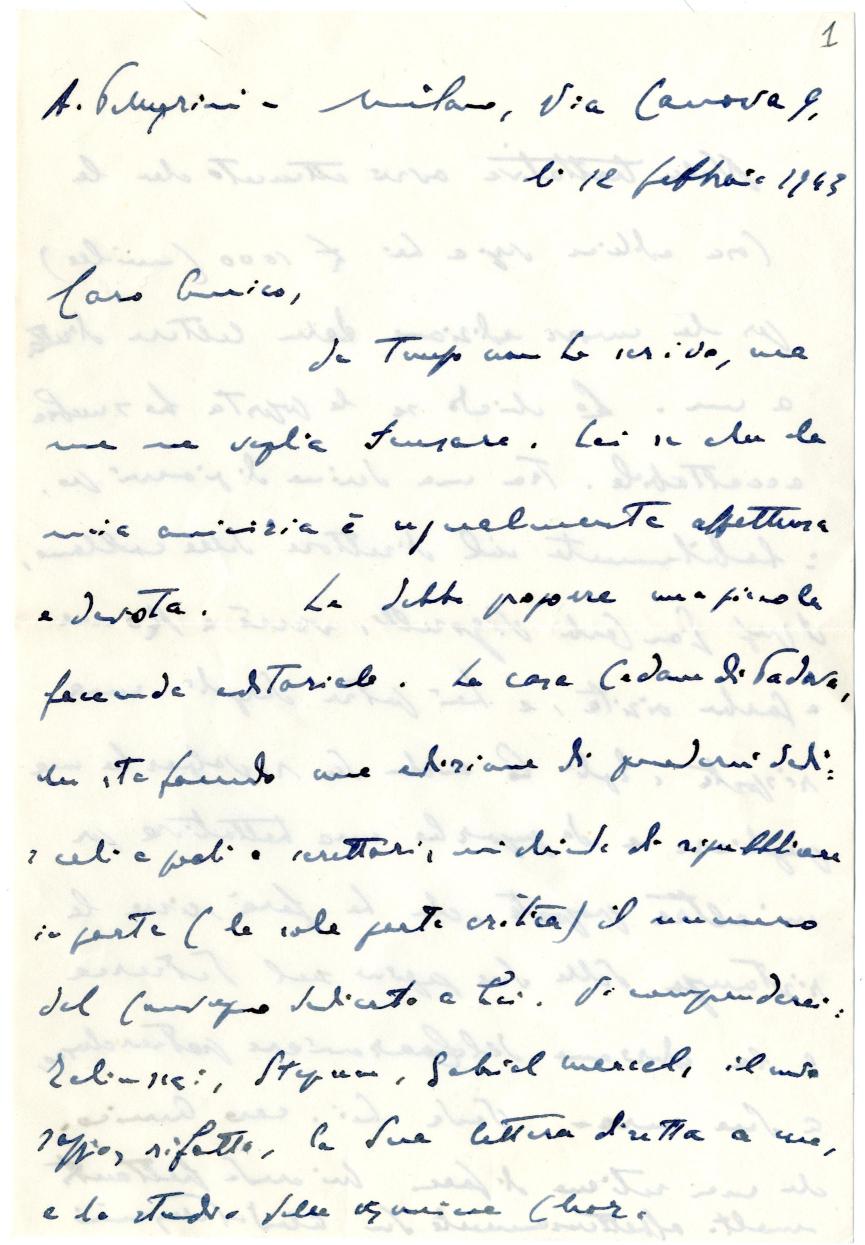 1
A. Pellegrini - Milano, Via Canova 9,
li 12 febbraio 1943
Caro Amico,
da tempo non Le scrivo, ma
me ne voglia scusare. Lei sa che la
mia amicizia è ugualmente affettuosa
e devota. Le debbo proporre una piccola
faccenda editoriale. La casa Cedam di Padova,
che sta facendo una edizione di quaderni dedi:
cati a poeti e scrittori, mi chiede di ripubblicare
in parte (la sola parte critica) il numero
del Convegno dedicato a Lei. Vi comprenderei:
Zelinskij, Stepun, Gabriel Marcel, il mio
saggio, rifatto, la Sua lettera diretta a me,
e lo studio della signorina Chor.